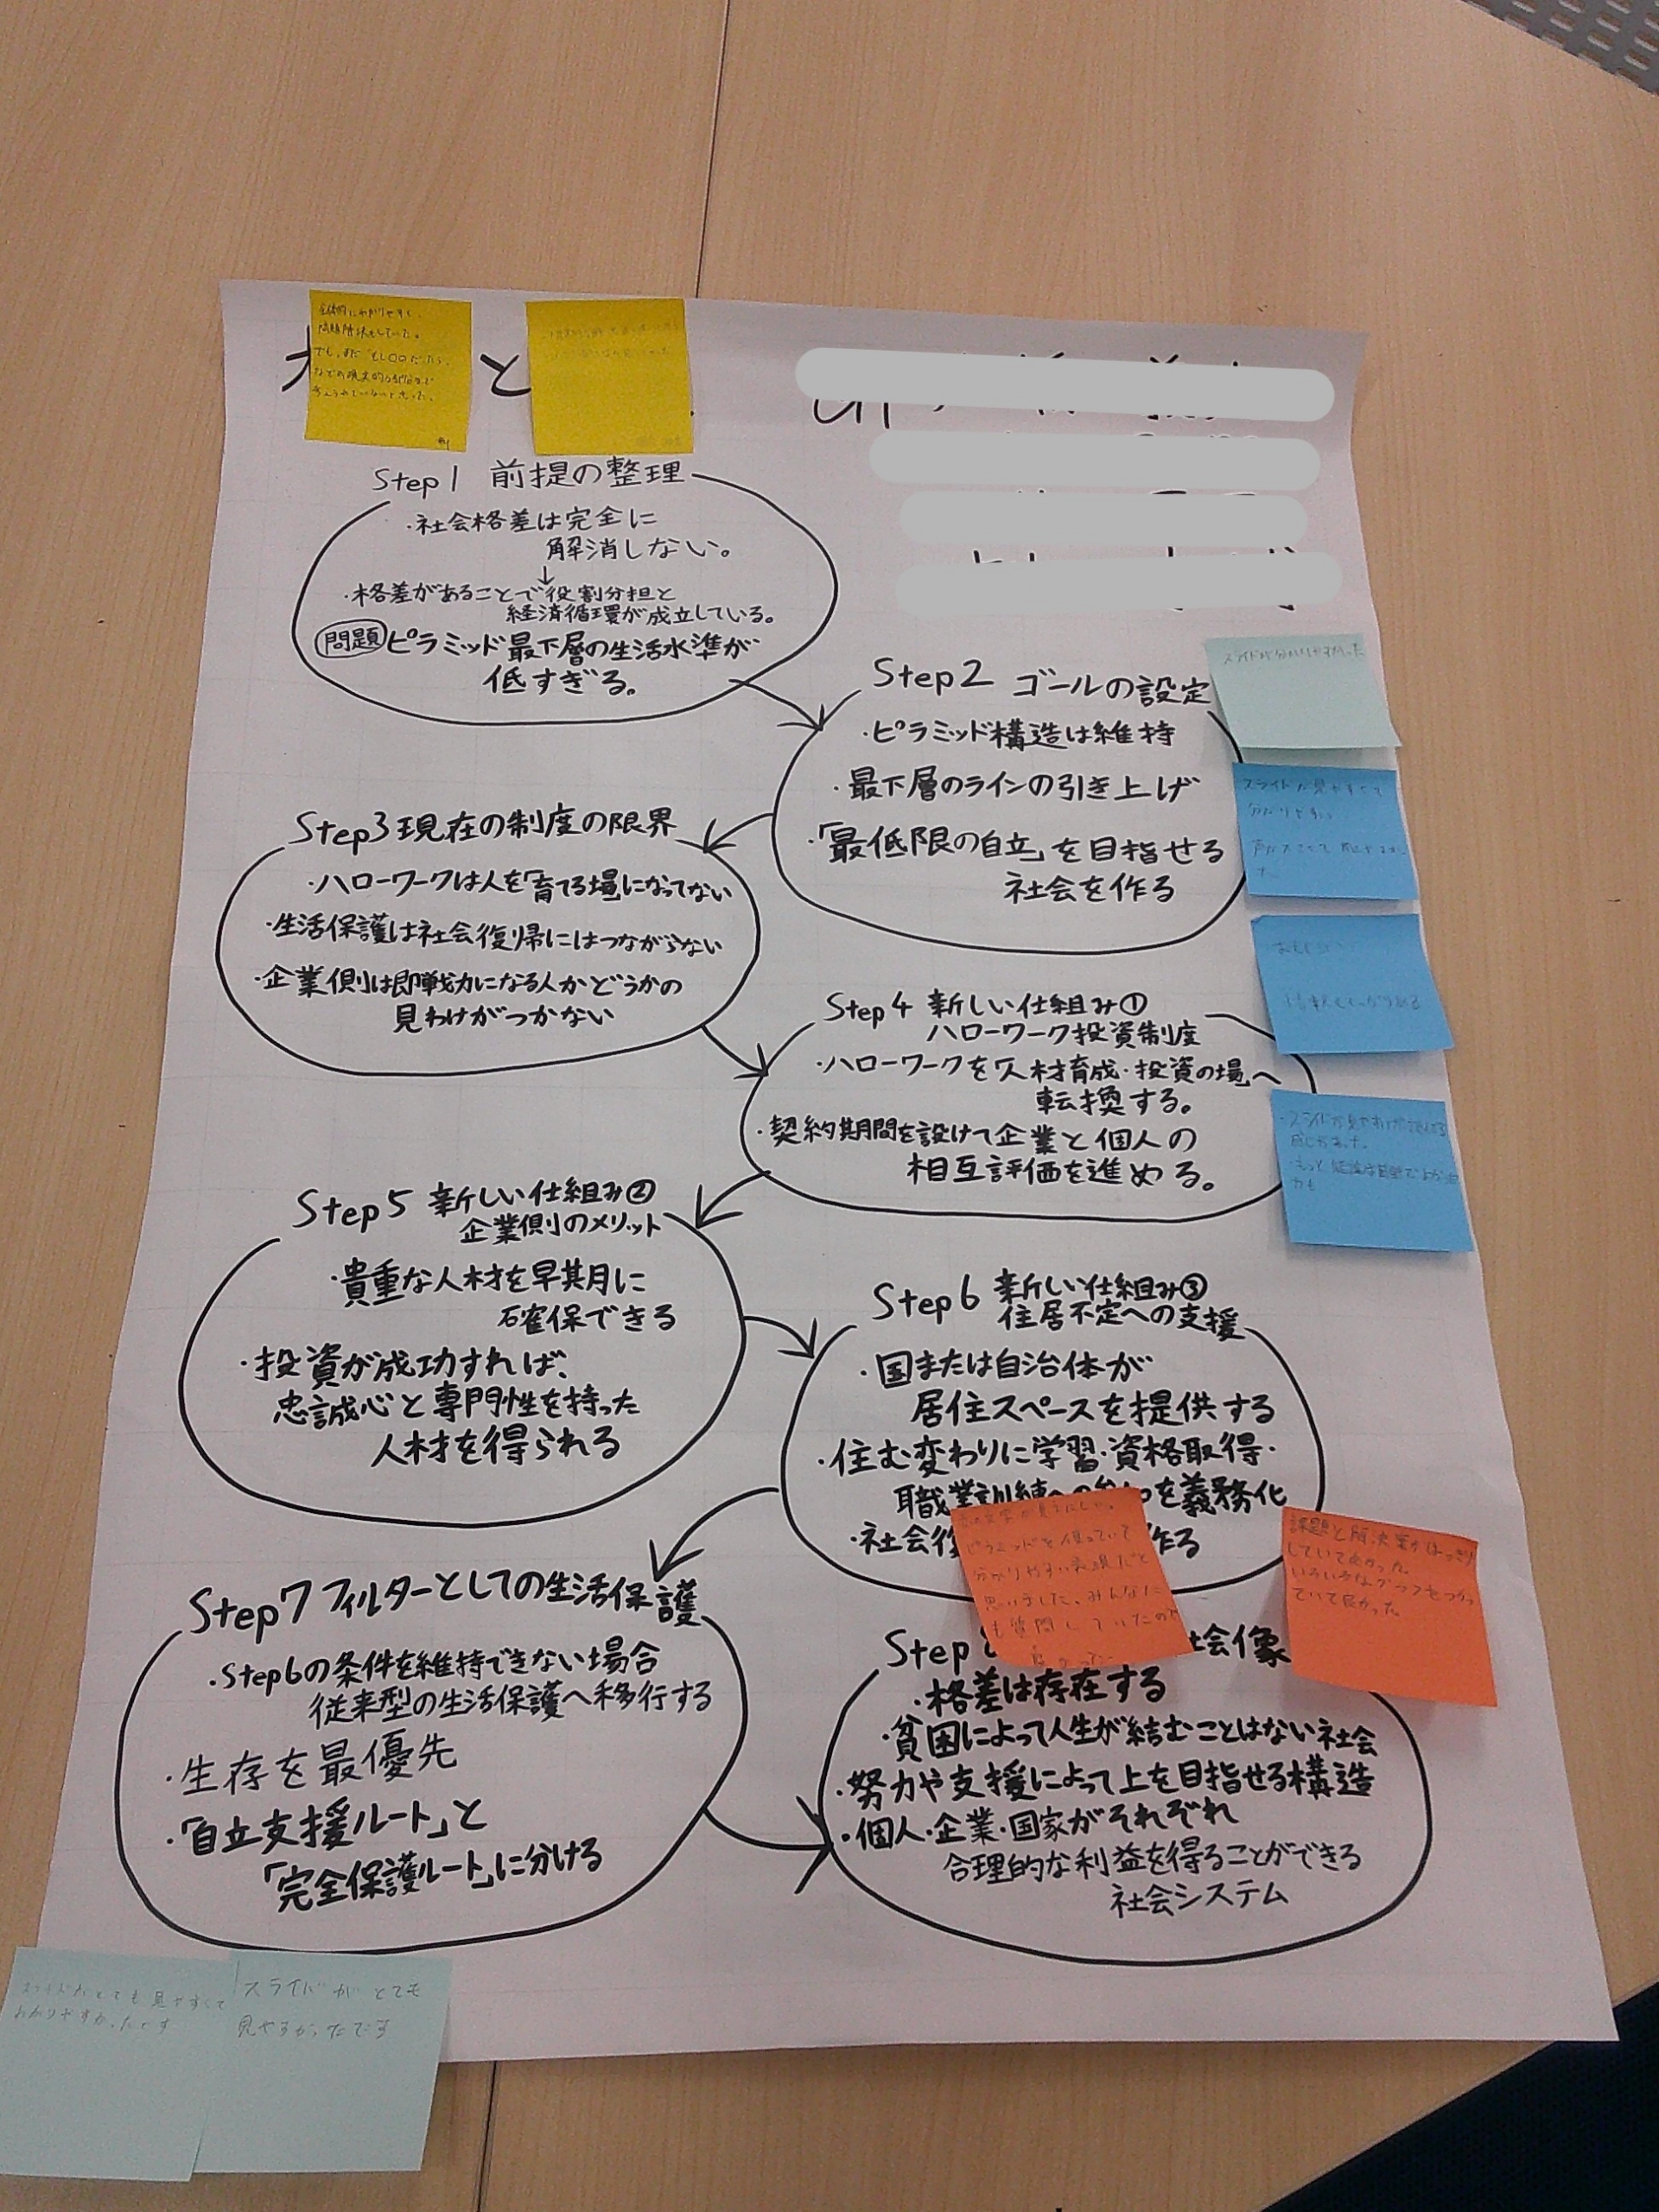 と
Step1 前提の整理
・社会格差は完全に
解消しない。
↓
・格差があることで役割分担と
経済循環が成立している。
問題 ピラミッド最下層の生活水準が
低すぎる。
Step2 ゴールの設定
・ピラミッド構造は維持
・最下層のラインの引き上げ
・「最低限の自立」を目指せる
社会を作る
Step3 現在の制度の限界
・ハローワークは人を「育てる場」になってない
・生活保護は社会復帰にはつながらない
・企業側は即戦力になる人かどうかの
見わけがつかない
Step4 新しい仕組み①
ハローワーク投資制度
・ハローワークを「人材育成・投資の場」へ
転換する。
・契約期間を設けて企業と個人の
相互評価を進める。
Step5 新しい仕組み②
企業側のメリット
・貴重な人材を早期に
確保できる
・投資が成功すれば、
忠誠心と専門性を持った
人材を得られる
Step6 新しい仕組み③
住居不定への支援
・国または自治体が
居住スペースを提供する
・住む変わりに学習・資格取得・
職業訓練への参加を義務化
・社会復 作る
Step7 フィルターとしての生活保護
・Step6の条件を維持できない場合
従来型の生活保護へ移行する
・生存を最優先
・「自立支援ルート」と
「完全保護ルート」に分ける
Step 社会像
・格差は存在する
・貧困によって人生が結むことはない社会
・努力や支援によって上を目指せる構造
・個人・企業・国家がそれぞれ
合理的な利益を得ることができる
社会システム
全体的にわかりやすく、
問題提起もしていた。
でも、まだ「もし〇〇だったら」
などの現実的な
スライドが分かりやすかった
スライドが見やすくて
分かりやすい
おもしろい
・スライドが見やすい
ピラミッドを使っていて
分かりやすい表現だと
思いました。みんなに
も質問していたので
良かった
課題と解決案がはっきり
していて良かった。
いろいろなグラフをつかっ
ていて良かった。
スライドがとても見やすくて
わかりやすかったです
スライドがとても
見やすかったです